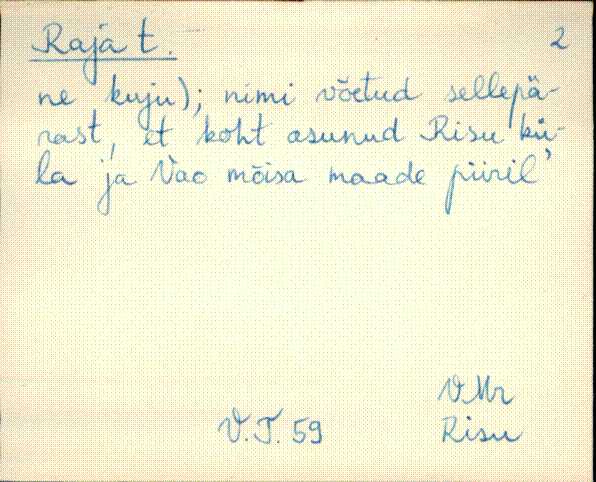 Raja t. 2
ne kuju); nimi võetud sellepä-
rast, et koht asunud Risu kü-
la ja Vao mõisa maade piiril’
VMr
V.T. 59 Risu